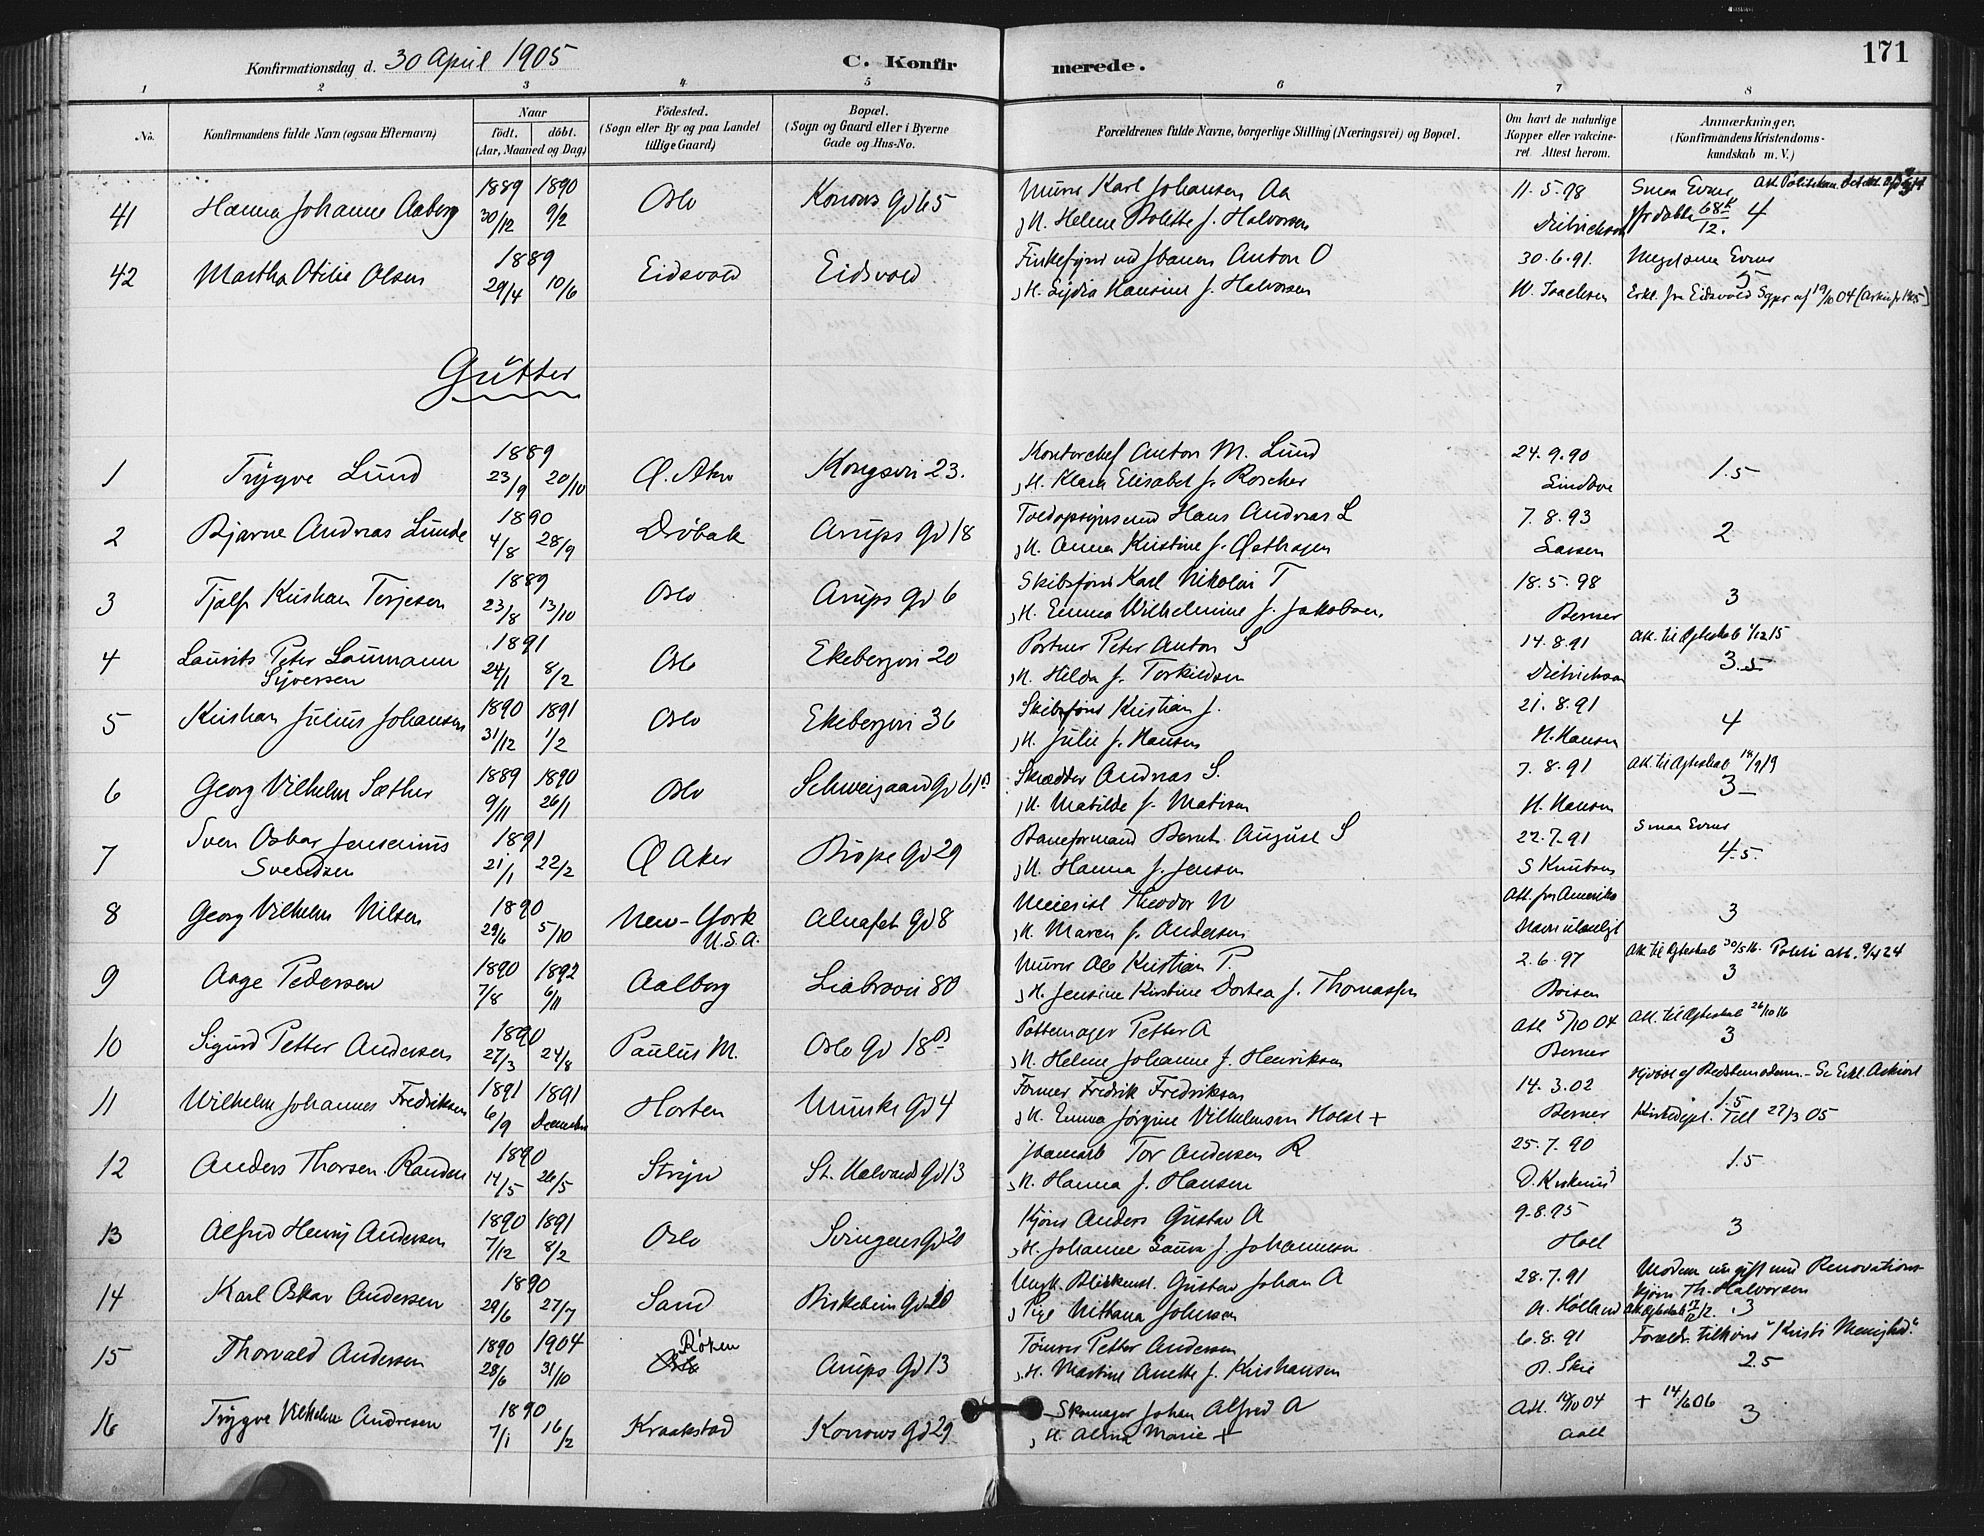 171
Konfirmationsdag d. 30 April 1905 C. Konfirmerede.
1 2 3 4 5 6 7 8
No. Konfirmandens fulde Navn (ogsaa Efternavn) Naar födt. döbt. (Aar, Maaned og Dag) Födested. (Sogn eller By og paa Landet tillige Gaard) Bopæl. (Sogn og Gaard eller i Byerne Gade og Hus-No. Forældrenes fulde Navne, borgerlige Stilling (Næringsvei) og Bopæl. Om havt de naturlige Kopper eller vakcineret Attest herom. Anmærkninger, (Konfirmandens Kristendomskundskab m. V.)
41 Hanna Johanne Aaberg 1889 30/12 1890 9/2 Oslo Konows Gd 65 Murer Karl Johansen Aa 11-5-98 Smaa Evner
H. Helene Bolette f. Halvorsen Dietrichson 4
42 Martha Otilie Olsen 1889 29/4 10/6 Eidsvold Eidsvold Anton O 30-6-91. Meget smaa Evner
H. Lydia Hansine f. Halvorsen W. Isachsen 5 Erkl. fra Eidsvold Sgpr af 19/10 04
Gutter
1 Trygve Lund 1889 23/9 20/10 Ø. Aker Kongsvei 23. Kontorchef Anton M. Lund 24-9-90 1.5
H. Klara Elisabet f. Roscher Lindboe
2 Bjarne Andreas Lunde 1890 4/8 28/9 Dröbak Arups Gd 18 Hans Andreas L 7-8-93 2
H. Anna Kristine f. Østhagen Larsen
3 Tjalf Kristian Terjesen 1889 23/8 13/10 Oslo Arups Gd 6 Skibsförer Karl Nikolai T 18-5-98 3
H. Emma Wilhelmine f. Jakobsen Berner
4 Laurits Peter Laumann Syversen 1891 24/1 8/2 Oslo Ekebergvei 20 Portner Peter Anton S 14-8-91 Att. til Ægteskab 1/12 15
H. Hilda f. Torkildsen Dietrichson 3.5
5 Kristian Julius Johansen 1890 31/12 1891 1/2 Oslo Ekebergvei 36 Skibsförer Kristian J. 21-8-91 4
H. Julie f. Hansen H. Hansen
6 Georg Vilhelm Sæther 1889 9/11 1890 26/1 Oslo Schweigaard Gd 61 B Skrædder Andreas S. 7-8-91 Att til Ægteskab 14/9 19
H. Matilde f. Matisen H. Hansen 3
7 Sven Oskar Jensenius Svendsen 1891 21/1 22/2 Ø Aker Bispe Gd 29 Baneformand Bernt August S 22-7-91 Smaa Evner
H. Hanna f. Jensen S Knutsen 4.5.
8 Georg Vilhelm Nilsen 1890 29/6 5/10 New-York U.S.A. Alnafet Gd 8 Theodor N Att. fra Amerika 3
H. Maren f. Andersen Navn ulæseligt
9 Aage Pedersen 1890 7/8 1892 6/11 Aalborg Liabrovei 80 Murer Ole Kristian P. 2-6-97 Att til Ægteskab 30/5 16. Politi att. 9/4 24
H. Jensine Kirstine Dortea f. Thomassen Boisen 3
10 Sigurd Petter Andersen 1890 27/3 24/8 Paulus M. Oslo Gd 18 B Pottemager Petter A Att 5/10 04 Att. til Ægteskab 26/10 16
H. Helene Johanne f. Henriksen Berner 3
11 Wilhelm Johannes Fredriksen 1891 6/9 1891 December Horten Munke Gd 4 Former Fredrik Fredriksen 14-3-02
H. Emma Jörgine Vilhelmsen Holst + Berner 1.5 Kirkedept. Till 27/3 05
12 Anders Thorsen Randen 1890 14/5 26/5 Stryn St. Halvards Gd 13 Tor Andersen R 25-7-90 1.5
H. Hanna f. Hansen
13 Alfred Henry Andersen 1890 7/12 1891 8/2 Oslo Svingens Gd 20 Kjörer Anders Gustav A 9-8-95 3
H. Johanne Laura f. Johannesen Holl
14 Karl Oskar Andersen 1890 29/6 27/7 Sand Birkebein Gd 20 Ungk. Blikkensl. Gustav Johan A 28-7-91 Moderen nu gift med Renovationskjörer Th. Halvorsen
Pige Mathea Johnsen 3
15 Thorvald Andersen 1890 28/6 1904 31/10 Röken Arups Gd 13 Tömrer Petter Andersen 6-8-91 Forældr. tilhörer "Kristi Menighed."
H. Martine Anette f. Kristiansen A. Skie 2.5
16 Trygve Vilhelm Andresen 1890 7/1 16/2 Kraakstad Konows Gd 29 Skomager Johan Alfred A Att. 04 + 14/6 06 3
H. Alma Marie + Aall